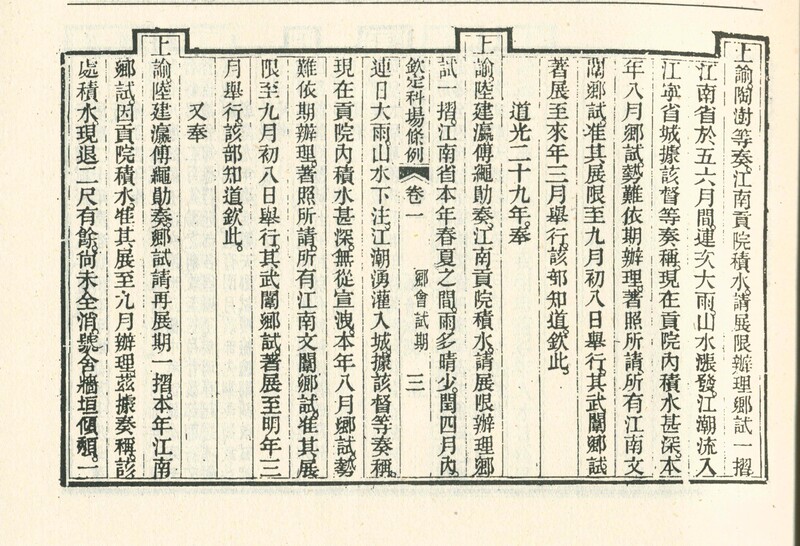 上諭。陶澍等奏。江南貢院積水。請展限辦理鄉試一摺。
江南省於五六月間。連次大雨。山水漲發。江潮流入
江寧省城。據該督等奏稱。現在貢院內積水甚深。本
年八月鄉試。勢難依期辦理。著照所請。所有江南文
闈鄉試。准其展限至九月初八日舉行。其武闈鄉試
著展至來年三月舉行。該部知道。欽此。
道光二十九年。奉
上諭。陸建瀛傅繩勛奏。江南貢院積水。請展限辦理鄉
試一摺。江南省本年春夏之間。雨多晴少。閏四月內。
欽定科場條例 卷一 鄉會試期 三
連日大雨。山水下注。江潮湧灌入城。據該督等奏稱。
現在貢院內積水甚深。無從宣洩。本年八月鄉試。勢
難依期辦理。著照所請。所有江南文闈鄉試。准其展
限至九月初八日舉行。其武闈鄉試。著展至明年三
月舉行。該部知道。欽此。
又奉
上諭。陸建瀛傅繩勛奏。鄉試請再展期一摺。本年江南
鄉試。因貢院積水。准其展至九月辦理。茲據奏稱。該
處積水現退二尺有餘。尚未全消。號舍牆垣傾頹。一